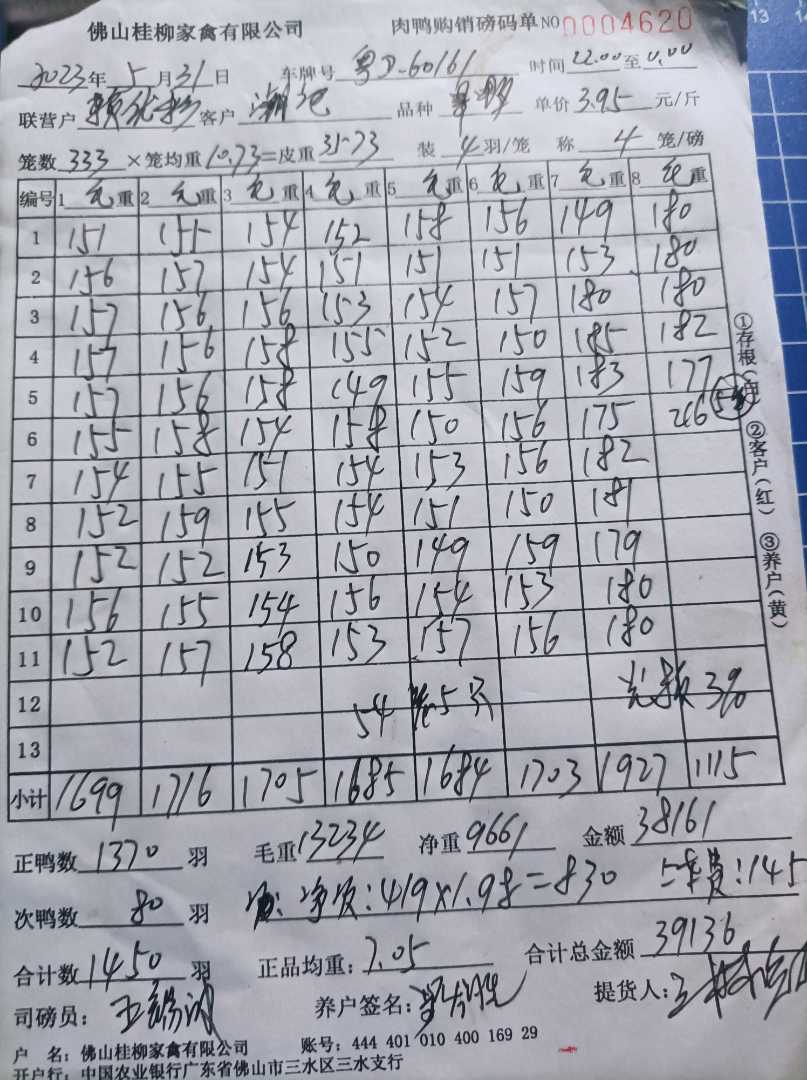 佛山桂柳家禽有限公司 肉鸭购销磅码单 NO 0004620
2023年5月31日 车牌号 粤D-60161 时间 22.00至0.00
联营户 客户 品种 单价 3.95 元/斤
笼数 333 ×笼均重 10.73=皮重 3573 装 4 羽/笼 称 4 笼/磅
编号 1 毛重 2 毛重 3 毛重 4 毛重 5 毛重 6 毛重 7 毛重 8 毛重
1 151 155 154 152 158 156 149 180
2 156 157 154 151 151 151 153 180
3 157 156 156 153 154 157 180 180
4 157 156 158 155 152 150 185 182
5 157 156 158 149 155 159 183 177
6 155 158 154 158 150 156 175 266
7 154 155 151 154 153 156 182
8 152 159 155 154 151 150 181
9 152 152 153 150 149 159 179
10 156 155 154 156 154 153 180
11 152 157 158 153 157 156 180
12 54 5只 3%
13
小计 1699 1716 1705 1685 1684 1703 1927 1115
①存根(白) ②客户(红) ③养户(黄)
正鸭数 1370 羽 毛重 13234 净重 9661 金额 38161
次鸭数 80 羽 净重:419×1.98=830 车费:145
合计数 1450 羽 正品均重: 7.05 合计总金额 39136
司磅员: 养户签名: 提货人:
户 名: 佛山桂柳家禽有限公司 账号: 444 401 010 400 169 29
开户行: 中国农业银行广东省佛山市三水区三水支行